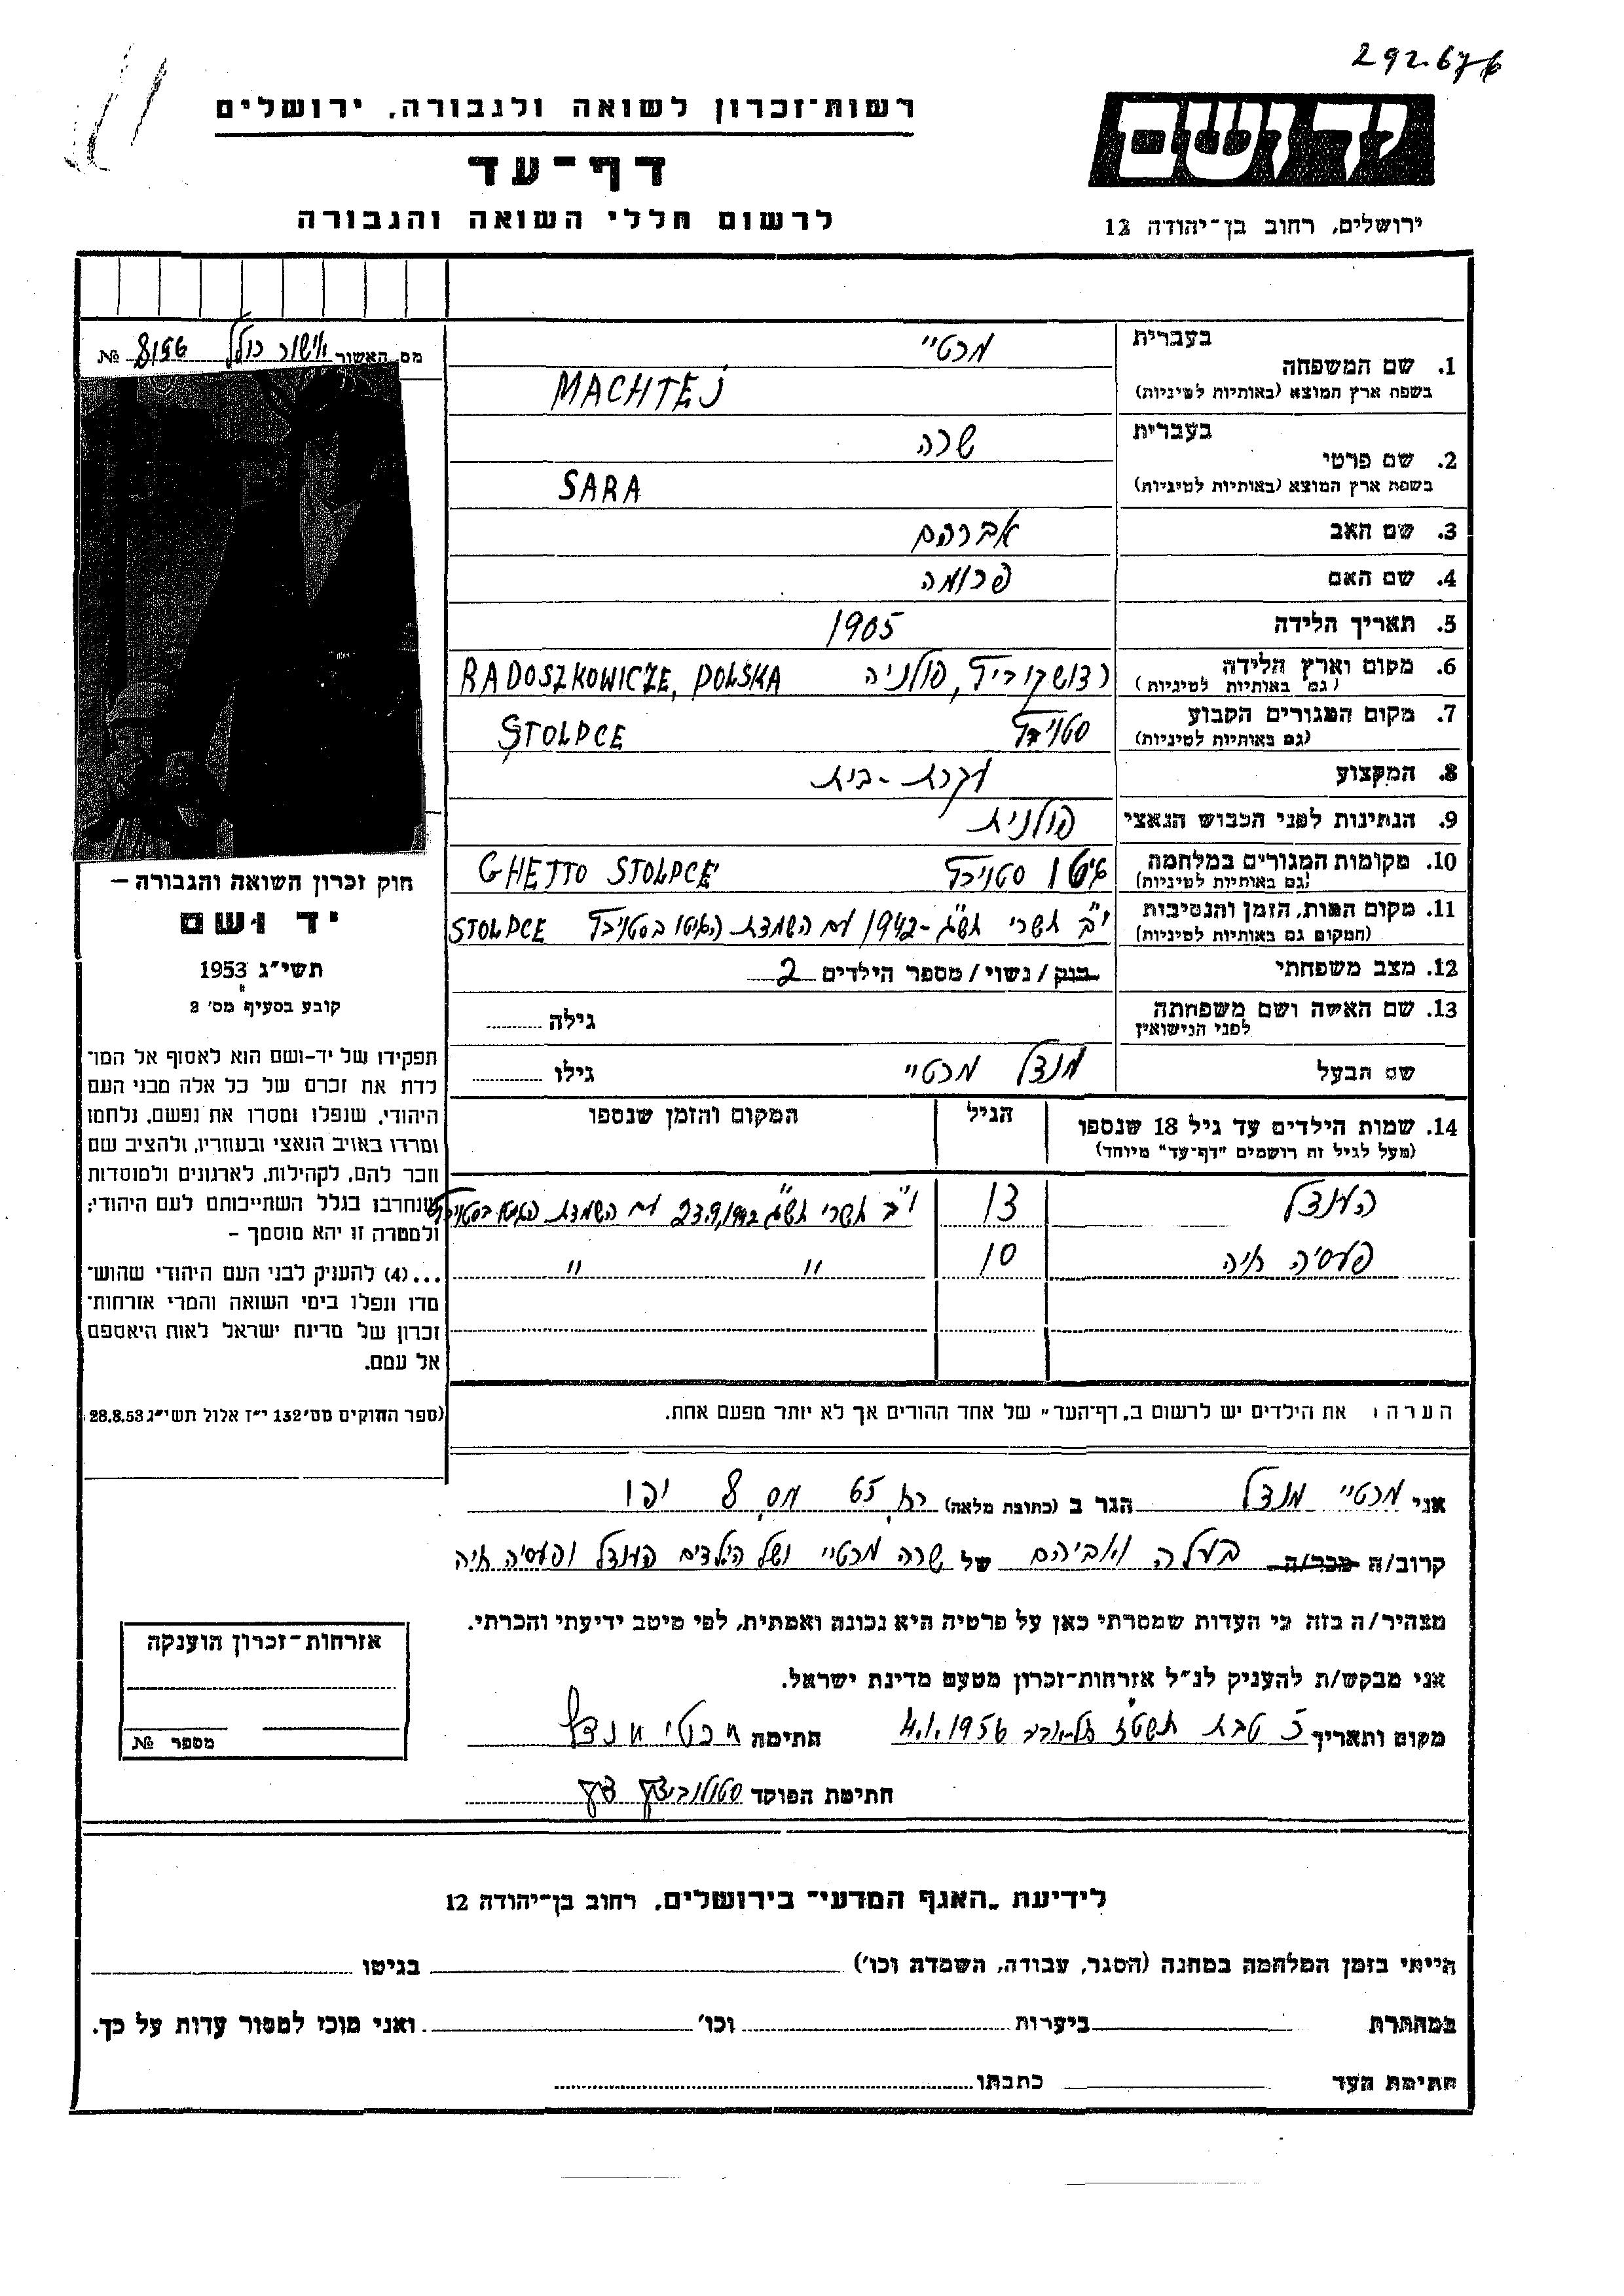 292.676
רשות־זכרון לשואה ולגבורה, ירושלים
דף־עד
לרשום חללי השואה והגבורה
יד ושם
ירושלים, רחוב בן־יהודה 12
מס. האשור אישור כולל 8156 №
בעברית
1. שם המשפחה
בשפת ארץ המוצא (באותיות לטיניות)
מכטיי
MACHTEJ
בעברית
2. שם פרטי
בשפת ארץ המוצא (באותיות לטיניות)
שרה
SARA
3. שם האב אברהם
4. שם האם פרומה
5. תאריך הלידה 1905
6. מקום וארץ הלידה
(גם באותיות לטיניות)
רדושקוביץ, פולניה RADOSZKOWICZE, POLSKA
7. מקום המגורים הקבוע
(גם באותיות לטיניות)
סטויבץ STOLPCE
8. המקצוע עקרת-בית
9. הנתינות לפני הכבוש הנאצי פולנית
10. מקומות המגורים במלחמה
(גם באותיות לטיניות)
גיטו סטויבץ GHETTO STOLPCE
11. מקום המות, הזמן והנסיבות
(המקום גם באותיות לטיניות)
י"ב תשרי תש"ג -1942 עם השמדת הגיטו בסטויבץ STOLPCE
12. מצב משפחתי רוק / נשוי / מספר הילדים 2
13. שם האשה ושם משפחתה
לפני הנישואין
גילה
שם הבעל מנדל מכטיי גילו
14. שמות הילדים עד גיל 18 שנספו
(מעל לגיל זה רושמים "דף־עד" מיוחד)
הגיל המקום והזמן שנספו
הענדל 13 י"ב תשרי תש"ג 23.9.1942 עם השמדת הגיטו בסטויבץ
פעסיה חיה 10 " "
הערה: את הילדים יש לרשום ב„דף־העד" של אחד ההורים אך לא יותר מפעם אחת.
חוק זכרון השואה והגבורה –
יד ושם
תשי"ג 1953
קובע בסעיף מס' 2
תפקידו של יד-ושם הוא לאסוף אל המו־
לדת את זכרם של כל אלה מבני העם
היהודי, שנפלו ומסרו את נפשם, נלחמו
ומרדו באויב הנאצי ובעוזריו, ולהציב שם
וזכר להם, לקהילות, לארגונים ולמוסדות
שנחרבו בגלל השתייכותם לעם היהודי;
ולמטרה זו יהא מוסמך –
...(4) להעניק לבני העם היהודי שהוש־
מדו ונפלו בימי השואה והמרי אזרחות־
זכרון של מדינת ישראל לאות היאספם
אל עמם.
(ספר החוקים מס' 132 י"ז אלול תשי"ג 28.8.53)
אני מכטיי מנדל הגר ב (כתובת מלאה) רח, 65 מס, 8 יפו
קרוב/ה מכר/ה בעלה ואביהם של שרה מכטיי ושל הילדים הענדל ופעסיה חיה
מצהיר/ה בזה כי העדות שמסרתי כאן על פרטיה היא נכונה ואמתית, לפי מיטב ידיעתי והכרתי.
אני מבקש/ת להעניק לנ"ל אזרחות-זכרון מטעם מדינת ישראל.
מקום ותאריך כ טבת תשט"ז תל-אביב 4.1.1956 חתימת מכטי מנדל
חתימת הפוקד
אזרחות-זכרון הוענקה
מספר №
לידיעת „האגף המדעי" בירושלים, רחוב בן־יהודה 12
הייתי בזמן המלחמה במחנה (הסגר, עבודה, השמדה וכו') בגיטו
במחתרת ביערות וכו' ואני מוכן למסור עדות על כך.
חתימת העד כתבתו